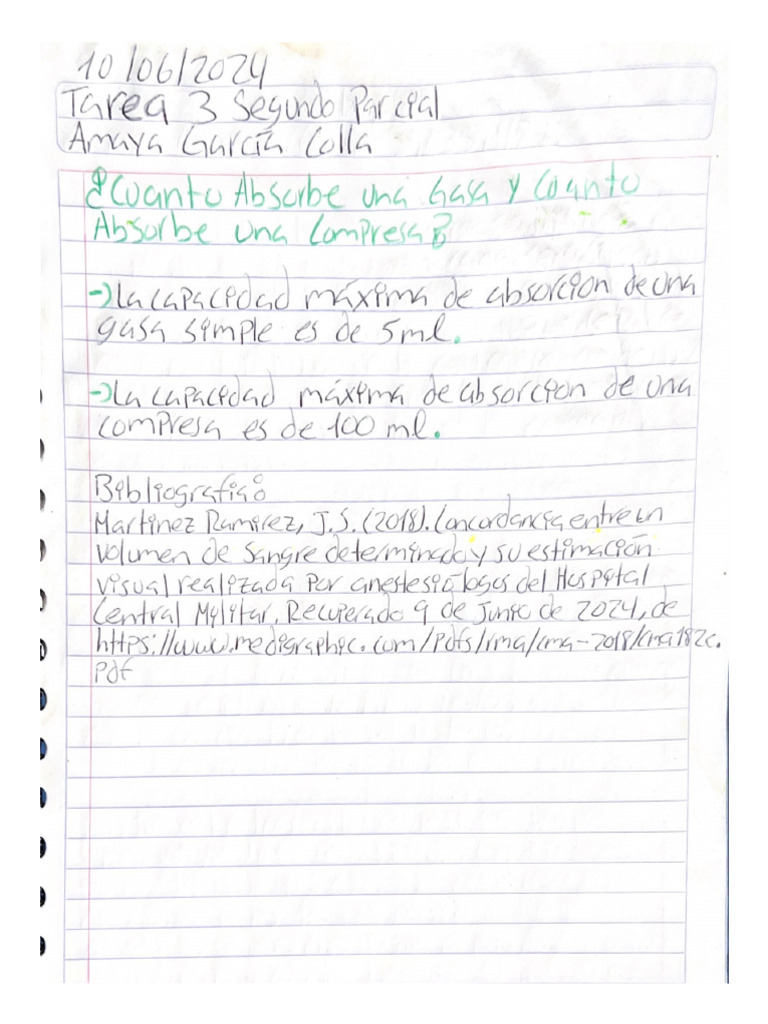 10/06/2024
Tarea 3 Segundo Parcial
Amaya García Colla
¿Cuanto Absorbe una Gasa y Cuanto
Absorbe una Compresa?
→La capacidad máxima de absorcion de una
gasa simple es de 5ml.
→La capacidad máxima de absorcion de una
compresa es de 100 ml.
Bibliografia:
Martinez Ramirez, J.S. (2018). Concordancia entre un
volumen de sangre determinado y su estimación
visual realizada por anestesiólogos del Hospital
Central Militar. Recuperado 9 de Junio de 2024, de
https://www.medigraphic.com/pdfs/rma/cma-2018/cma182c.
pdf